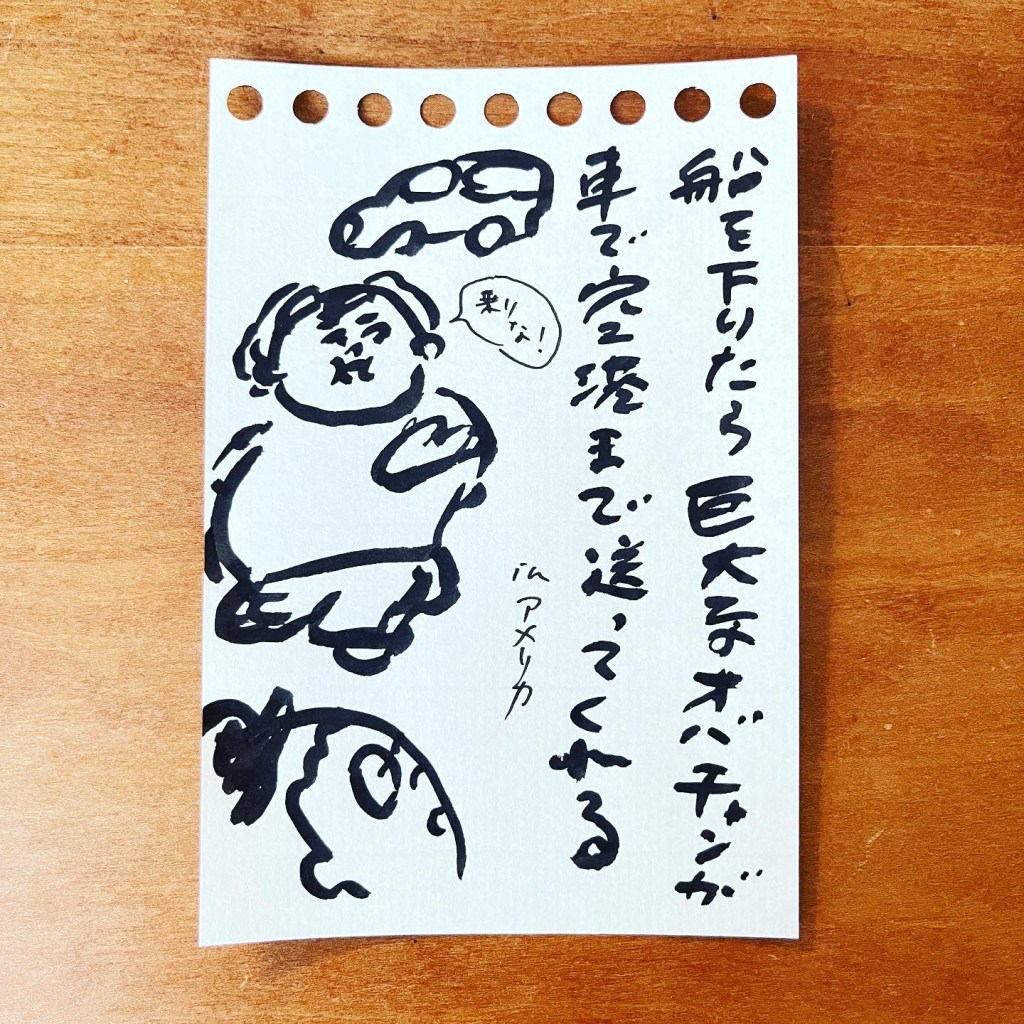 船を下りたら 巨大なオバチャンが
車で空港まで送ってくれる
乗りな!
in アメリカ